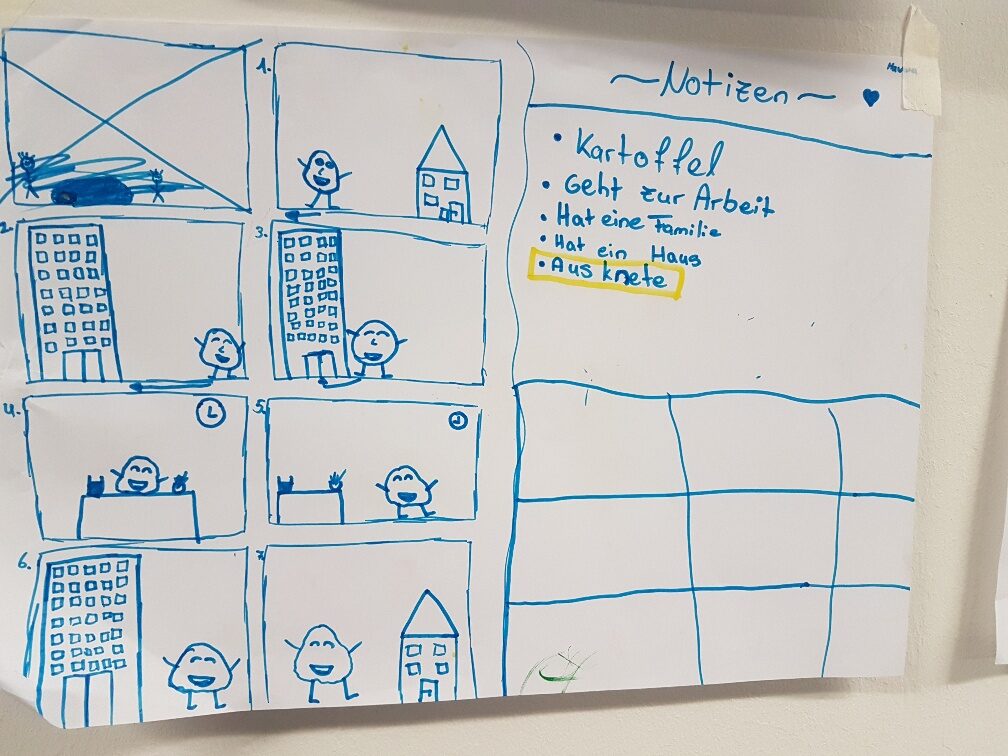 1.
2.
3.
4.
5.
6.
7.
~Notizen~ ♥
• Kartoffel
• Geht zur Arbeit
• Hat eine Familie
• Hat ein Haus
• Aus knete